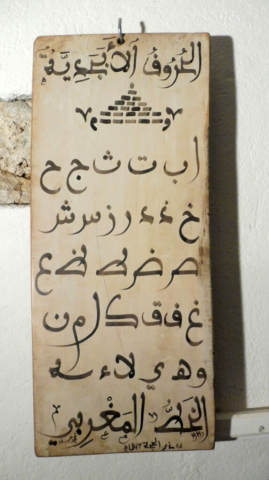 الحُرُوفُ الأَبْجَدِيَّة
ا ب ت ث ج ح
خ د ذ ر ز س ش
ص ض ط ظ ع
غ ف ق ك ل م ن
و ه ي لا ء
الخَطُّ المَغْرِبِي